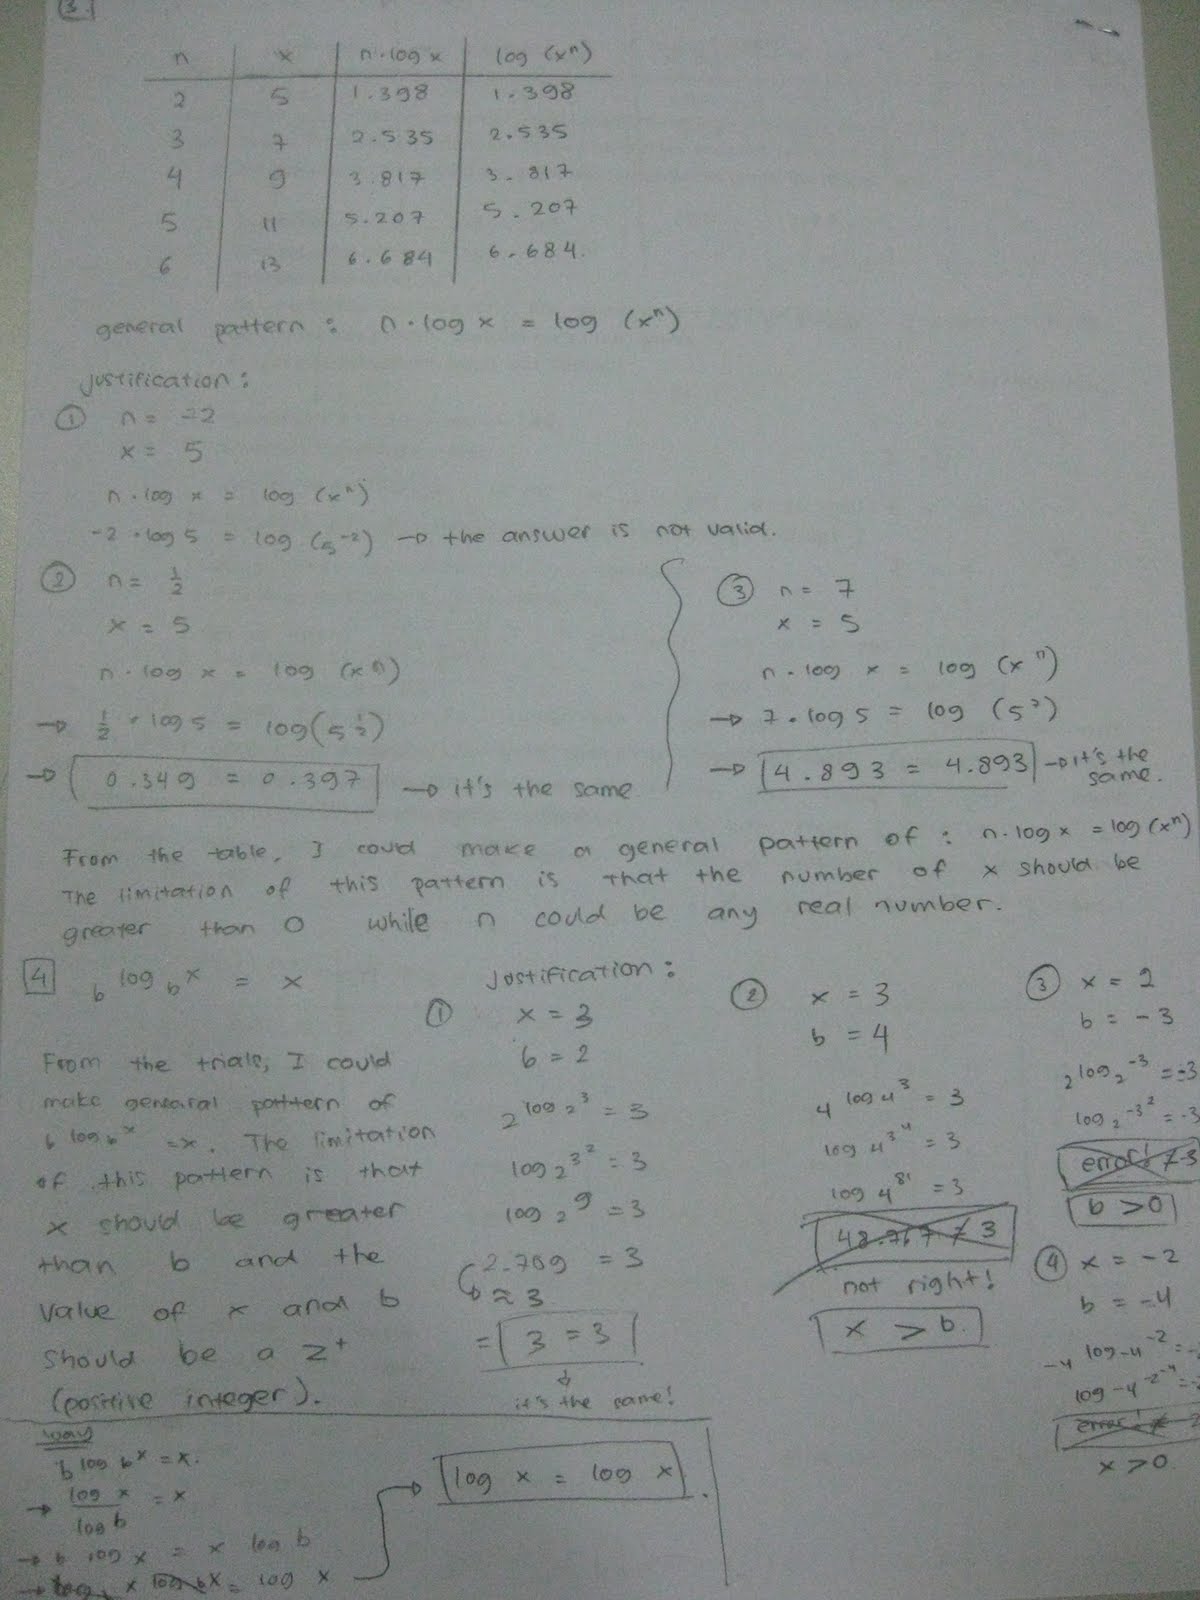 3.
n x n·log x log (xⁿ)
2 5 1.398 1.398
3 7 2.535 2.535
4 9 3.817 3.817
5 11 5.207 5.207
6 13 6.684 6.684.
general pattern : n·log x = log (xⁿ)
justification :
① n = -2
x = 5
n·log x = log (xⁿ)
-2·log 5 = log (5⁻²) → the answer is not valid.
② n = 1/2
x = 5
n·log x = log (xⁿ)
→ 1/2 · log 5 = log(5^1/2)
→ 0.349 = 0.397 → it's the same
③ n = 7
x = 5
n·log x = log (xⁿ)
→ 7·log 5 = log (5⁷)
→ 4.893 = 4.893 → it's the
same.
From the table, I could make a general pattern of : n·log x = log(xⁿ)
The limitation of this pattern is that the number of x should be
greater than 0 while n could be any real number.
4 b^log_b^x = x
From the trials, I could
make genearal pattern of
b^log_b^x = x. The limitation
of this pattern is that
x should be greater
than b and the
value of x and b
should be a Z⁺
(positive integer).
Justification :
① x = 3
b = 2
2^log_2^3 = 3
log 2^3^2 = 3
log 2^9 = 3
2.709 = 3
≈ 3
= 3 = 3
it's the same!
② x = 3
b = 4
4^log 4^3 = 3
log 4^3^4 = 3
log 4^81 = 3
48.767 ≠ 3
not right!
x > b.
③ x = 2
b = -3
2^log_2^-3 = -3
log_2^-3^2 = -3
error! ≠ 3
b > 0
④ x = -2
b = -4
-4^log-4^-2 =
log-4^-2^-4 =
error! ≠
x > 0
way
b^log b^x = x.
→ log x / log b = x
→ b log x = x log b
→ x log b x = log x
log x = log x.